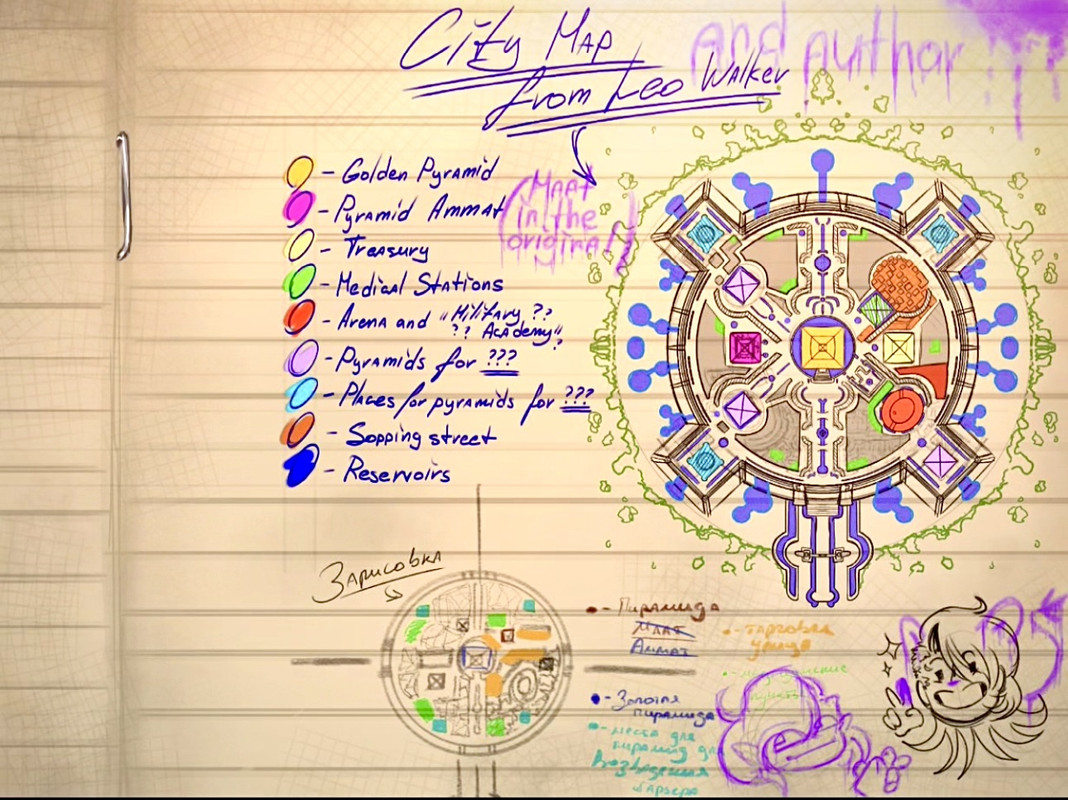 City Map
from Leo Walker
and author
- Golden Pyramid
- Pyramid Ammat
(Maat
in the
original)
- Treasury
- Medical Stations
- Arena and "Military ??
?? Academy"?
- Pyramids for ???
- Places for pyramids for ???
- Sopping street
- Reservoirs
Зарисовка
- Пирамида
Маат
Аммат
- торговая
улица
пункты
- Золотая
пирамида
- места для
пирамид для
Возведения
барьера